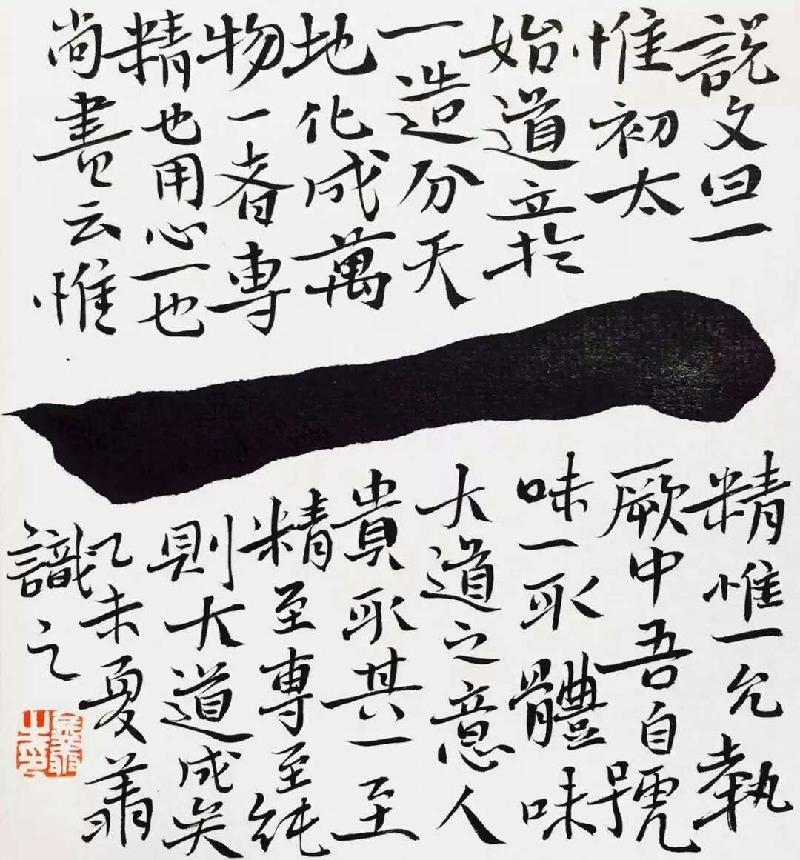 説文曰一
惟初太
始道立於
一造分天
地化成萬
物一者專
精也用心一也
尚書云惟
一
精惟一允執
厥中吾自號
味一取體味
大道之意人
貴取其一至
精至專至純
則大道成矣
乙未夏
識之